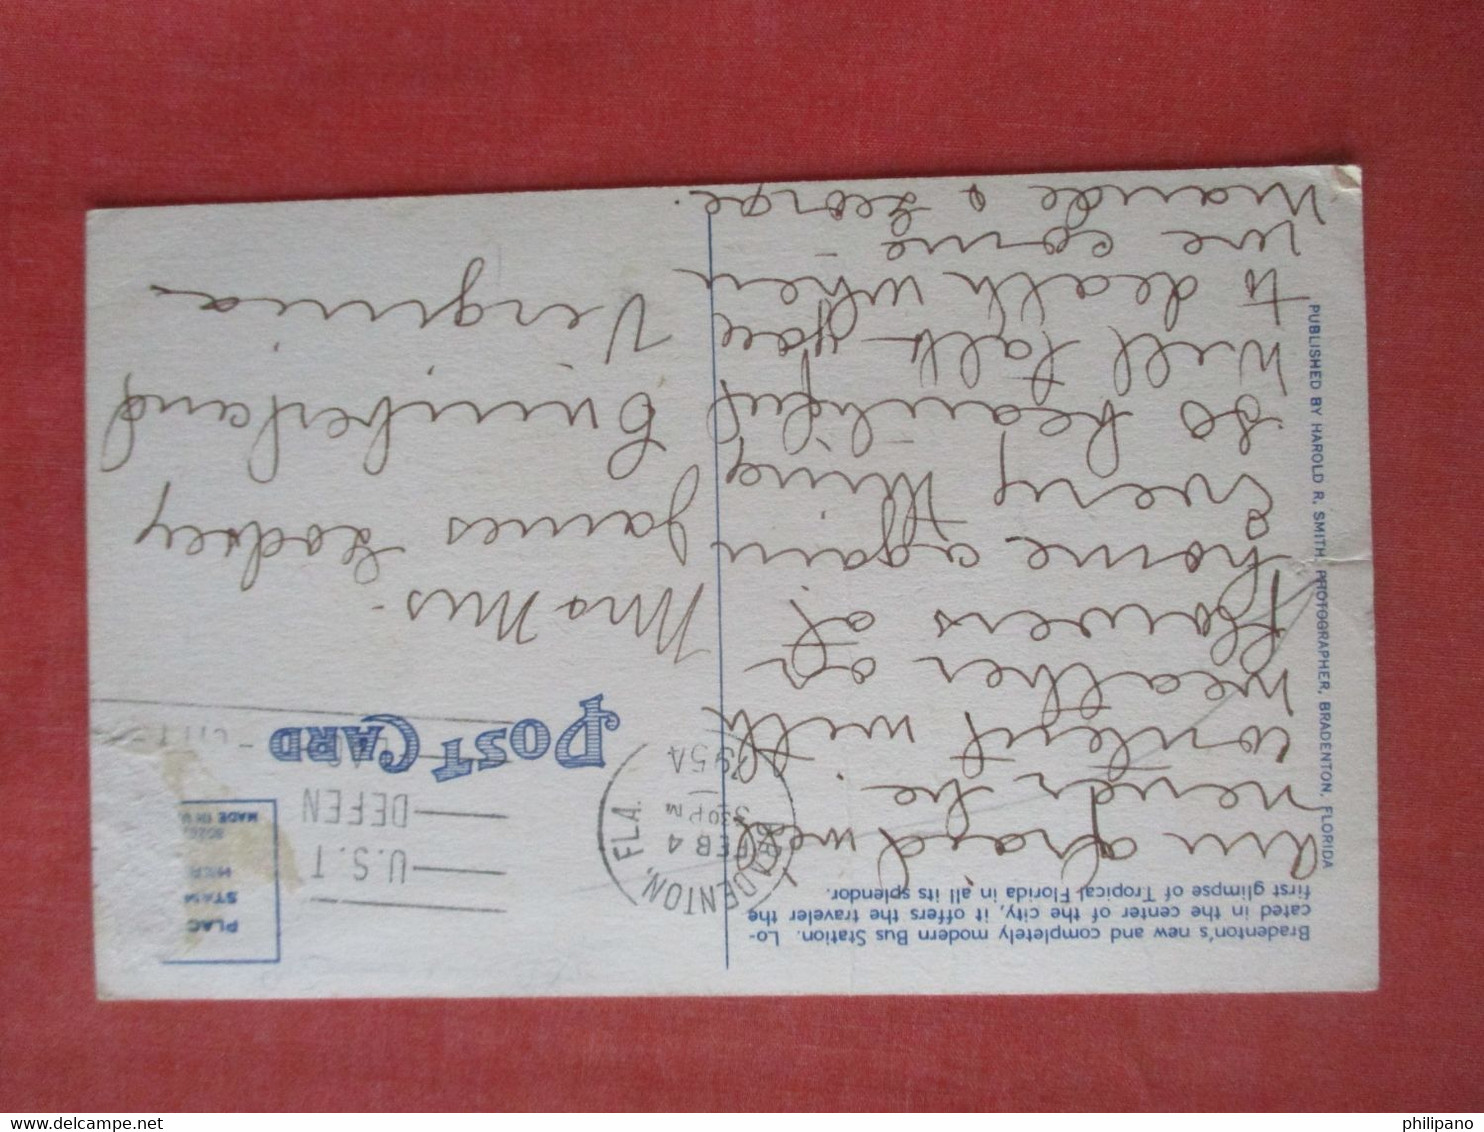 Bradenton's new and completely modern Bus Station. Lo-
cated in the center of the city, it offers the traveler the
first glimpse of Tropical Florida in all its splendor.
am afraid we'll
never be
content with
weather or
flowers at
home again
Every thing
so beautiful
Will talk you
to death when
we come
Maude & George.
PUBLISHED BY HAROLD R. SMITH, PHOTOGRAPHER, BRADENTON, FLORIDA
POST CARD
PLAC
STAM
HER
MADE IN U
BRADENTON, FLA.
FEB 4
330 PM
195
U.S. T
DEFEN
Mr & Mrs.
James Godsey
Cumberland
Virginia
philipano